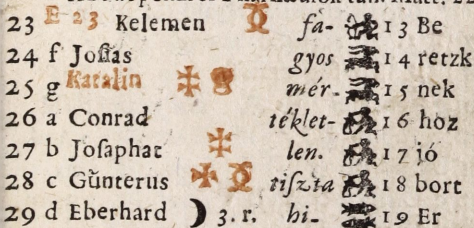 23 E 23 Kelemen fá- 13 Be
24 f Joſias gyos 14 retzk
25 g Katalin mér- 15 nek
26 a Conrad téklet- 16 hoz
27 b Joſaphat len. 17 jó
28 c Gŭnterus tiſzta 18 bort
29 d Eberhard 3. r. hi- 19 Er